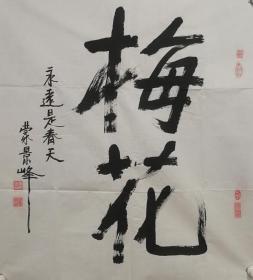 梅花
永远是春天
景峰